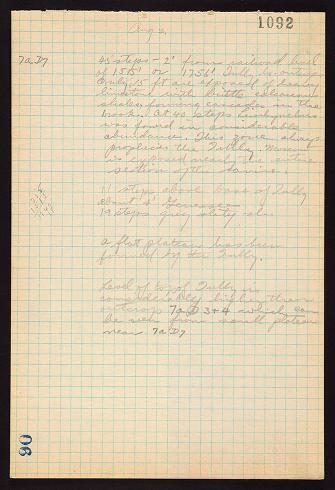 1092
Aug 2,
7a.D7 45 steps - 2' from railroad level
of 1515' or 1756' Tully is outcrop
Only 15 ft are exposed of
limestone with little calcareous
shales, forming cascades in the
brook. At 40 steps
was found in considerable
abundance. This zone always
the Tully.
is exposed nearly the entire
section of the ravine.
11 steps above base of Tully
about 4' Genesee
19 steps grey slaty sh.
A flat plateau has been
formed by the Tully.
Level of top of Tully is
considerably higher than
outcrop 7a.D 3+4 which can
be seen from small plateau
near 7a D7
90